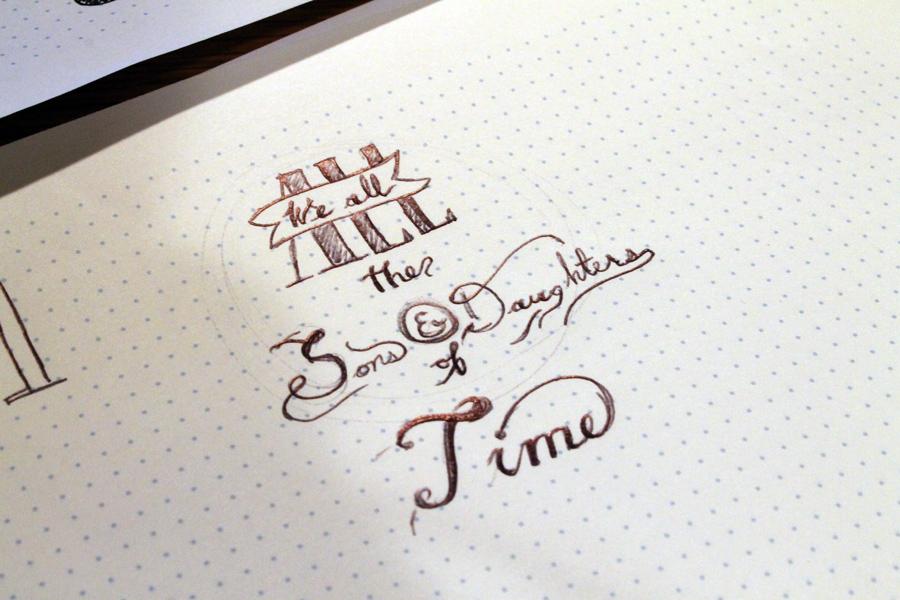 ALL
We all
the
Sons & Daughters
of
Time